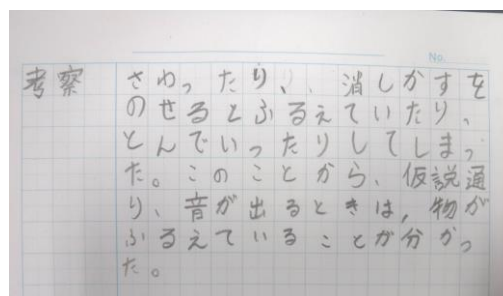 No.
考察 さわったり、、消しかすを
のせるとふるえていたり、
とんでいったりしてしまっ
た。このことから、仮説通
り、音が出るときは,物が
ふるえていることが分かっ
た。